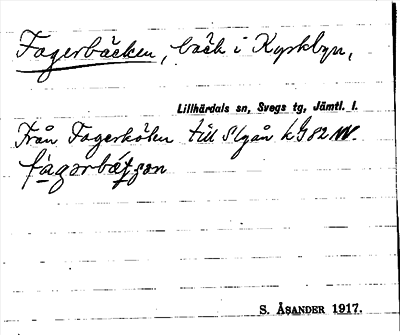 Fagerbäcken, bäck i Kyrkbyn,
Lillhärdals sn, Svegs tg, Jämtl. l.
Från Fagerkölen till Slyån
S. ÅSANDER 1917.